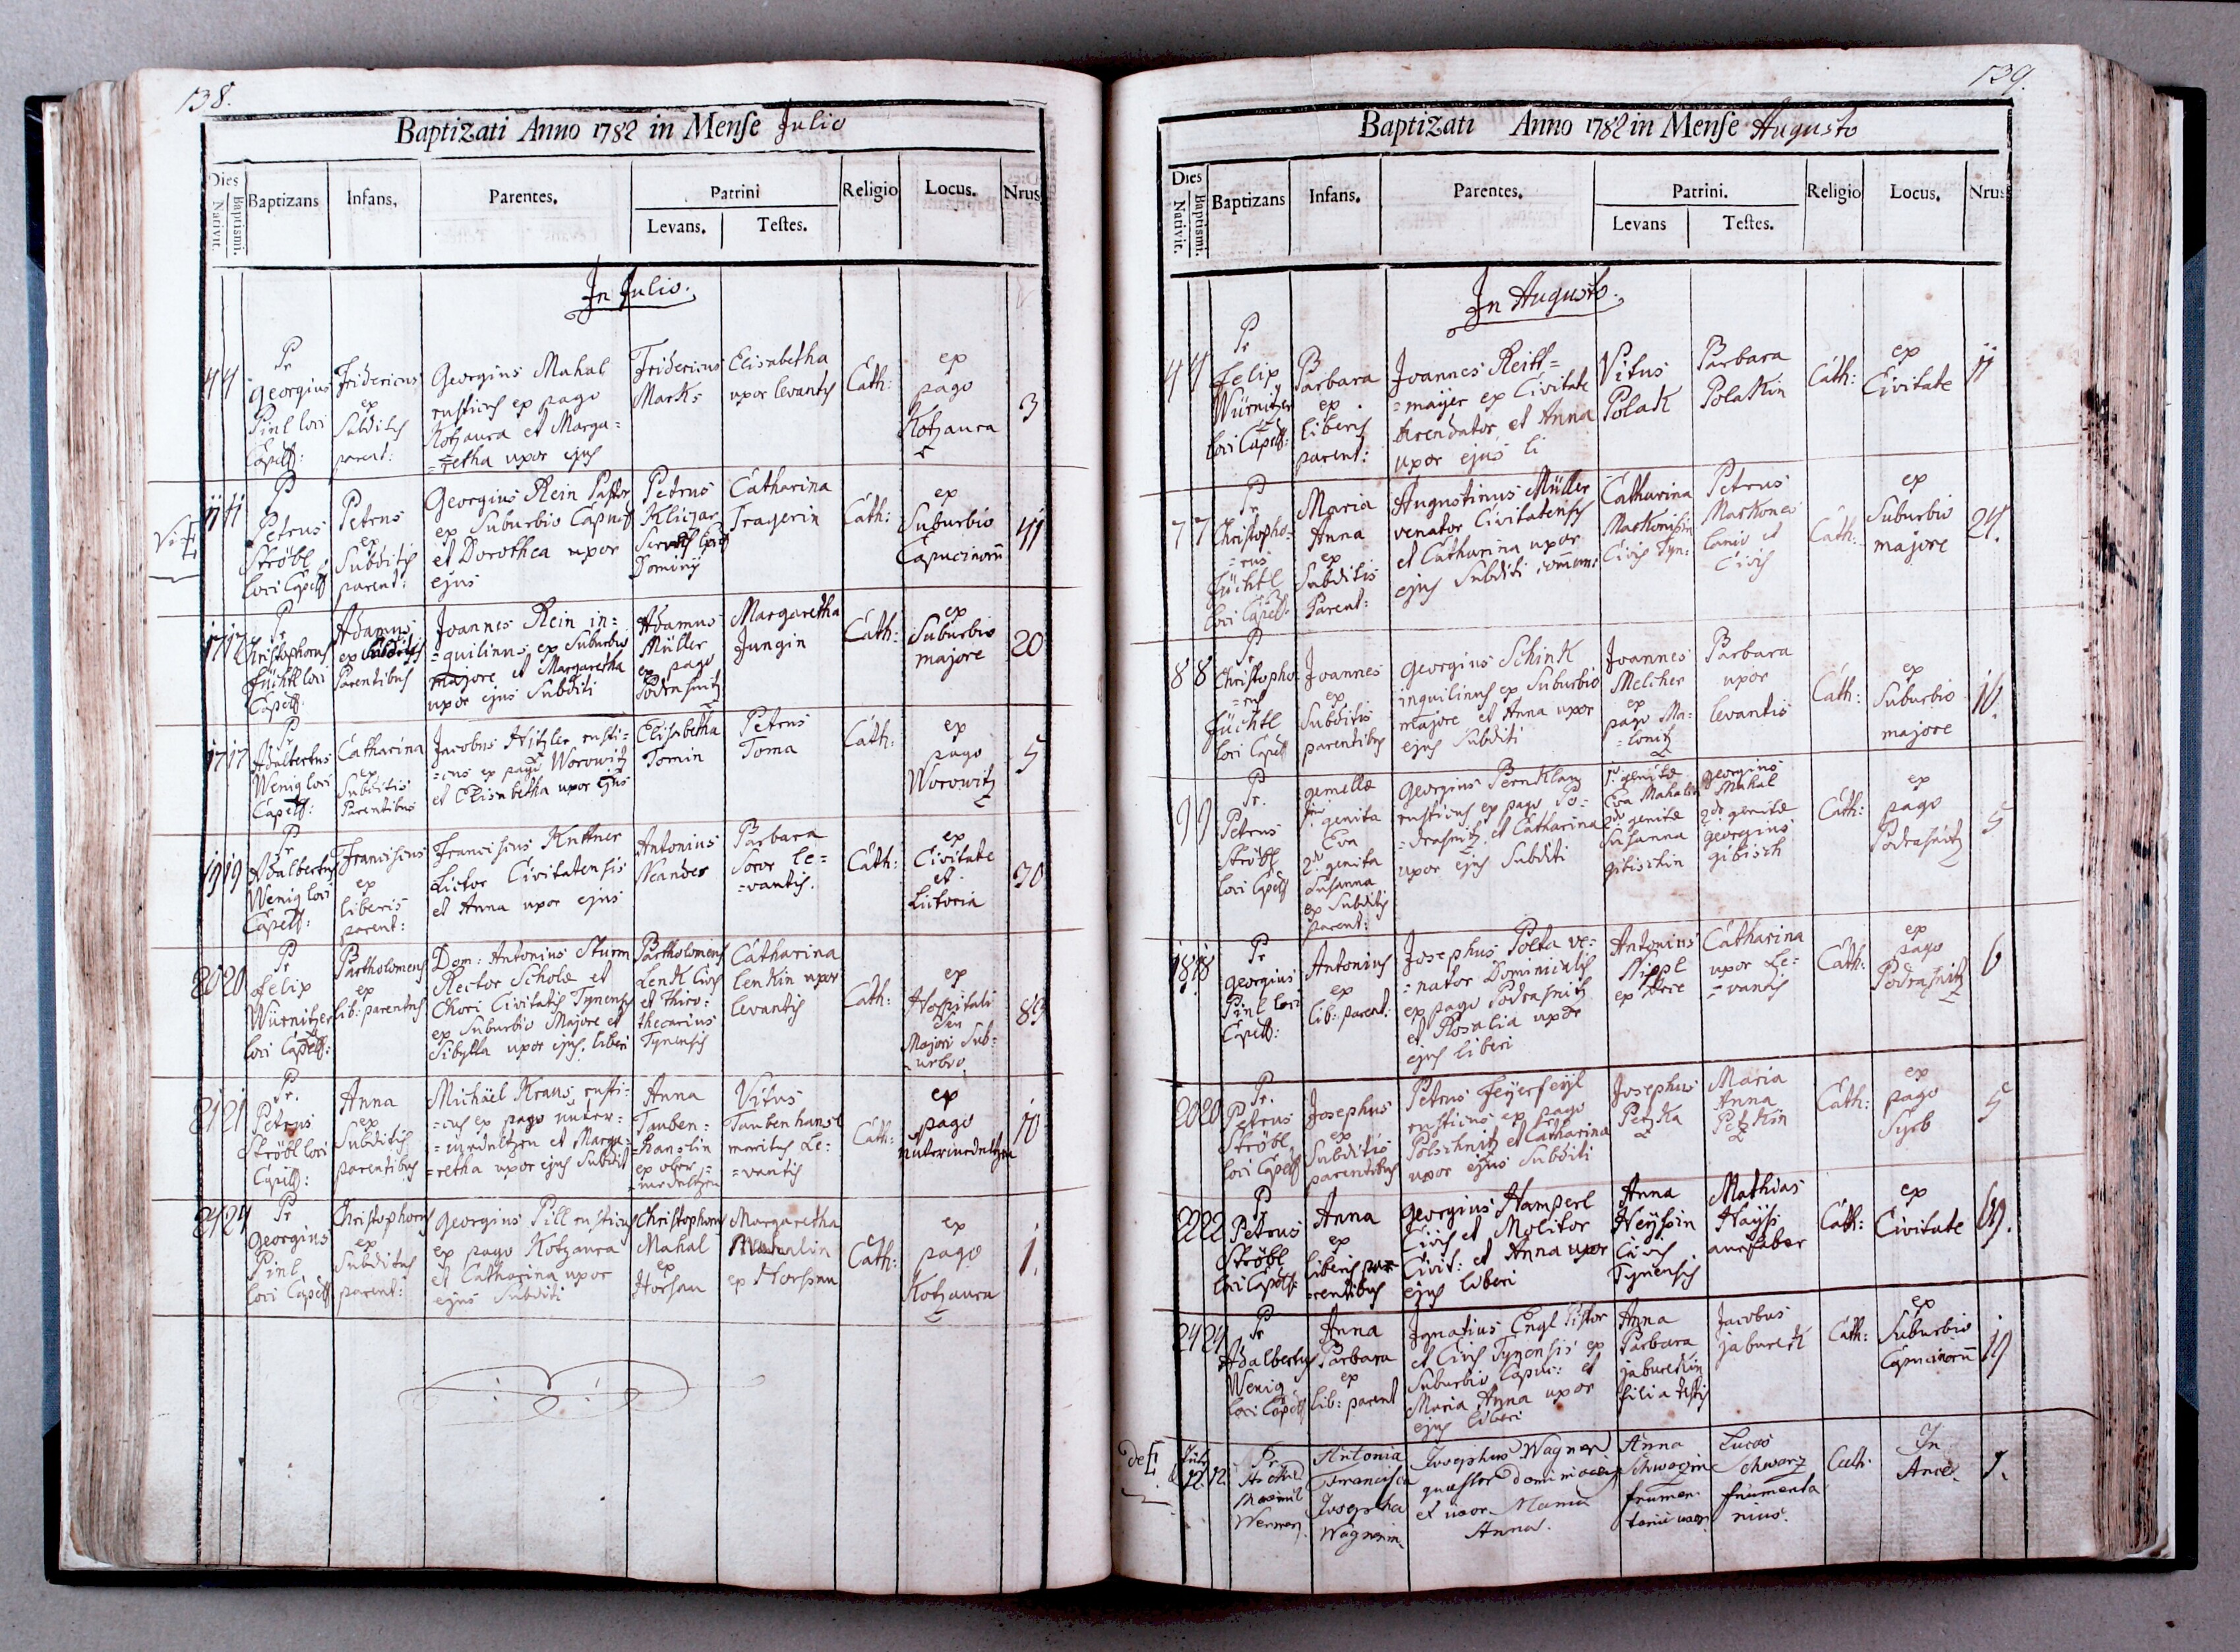 138.
Baptizati Anno 1782 in Mense Julio
Dies
Nativit.
Baptismi.
Baptizans
Infans.
Parentes.
Patrini
Levans.
Testes.
Religio
Locus.
Nrus
In Julio.
4 4
Pr
Georgius
Pinl loci
Capell:
Fridericus
ex
Subditis
parent:
Georgius Mahal
rusticus ex pago
Kotzaura et Marga=
=retha uxor ejus
Fridericus
Marks
Elisabetha
uxor levantis
Cath:
ex
pago
Kotzaura
3
11 11
P
Petrus
Ströbl
loci Capell
Petrus
ex
Subditis
parent:
Georgius Rein Pastor
ex Suburbio
et Dorothea uxor
ejus
Petrus
Klicjar
Dominij
Catharina
Tragerin
Cath:
ex
Suburbio
Capucinorū
41
17 17
Pr
Christophorus
Füchtl loci
Capell:
Adamus
ex Subditis
Parentibus
Joannes Rein in=
=quilinus ex Suburbio
majore et Margaretha
uxor ejus Subditi
Adamus
Müller
ex pago
Podrasnitz
Margaretha
Jungin
Cath:
ex
Suburbio
majore
20
17 17
Pr
Adalbertus
Wenig loci
Capell:
Catharina
ex
Subditis
Parentibus
Jacobus Hitzler rusti=
=cus ex pago Worowitz
et Elisabetha uxor ejus
Elisabetha
Tomin
Petrus
Toma
Cath:
ex
pago
Worowitz
5
19 19
Pr
Adalbertus
Wenig loci
Capell:
Franciscus
ex
liberis
parent:
Franciscus Kuttner
Lictor Civitatensis
et Anna uxor ejus
Antonius
Neander
Barbara
Soror le=
=vantis.
Cath:
ex
Civitate
et
Lictoria
30
20 20
Pr
Felix
Würnitzer
loci Capell:
Bartholomeus
ex
lib: parentibus
Dom: Antonius Sturm
Rector Scholæ et
Chori Civitatis Tynensis
ex Suburbio Majore et
Sibylla uxor ejus liberi
Bartholomeus
Lenk Civis
et
thecarius
Tynensis
Catharina
Lenkin uxor
levantis
Cath:
ex
Hospitali
seu
Majori Sub=
urbio
89
21 21
Pr.
Petrus
Ströbl loci
Capell:
Anna
ex
Subditis
parentibus
Michäel Kraus rusti=
=cus ex pago unter=
=medeltzen et Marga=
=retha uxor ejus Subditi
Anna
Tauben=
=hanslin
ex ober=
=medeltzen
Vitus
Taubenhansl
maritus Le=
=vantis
Cath:
ex
pago
untermedeltzen
10
24 24
Pr
Georgius
Pinl
loci Capell
Christophorus
ex
Subditis
parent:
Georgius Pill rusticus
ex pago Kotzaura
et Catharina uxor
ejus Subditi
Christophorus
Mahal
ex
Horsau
Margaretha
Mahalin
ex Horsau
Cath:
ex
pago
Kotzaura
1.
139.
Baptizati Anno 1782 in Mense Augusto
Dies
Nativit.
Baptismi.
Baptizans
Infans.
Parentes.
Patrini.
Levans
Testes.
Religio
Locus.
Nrus
In Augusto.
4 4
Pr
Felix
Würnitzer
loci Capell:
Barbara
ex
liberis
parent:
Joannes Reitt=
=maijer ex Civitate
Arendator et Anna
uxor ejus li
Vitus
Polak
Barbara
Polakin
Cath:
ex
Civitate
11
7 7
Pr
Christopho=
=rus
Füchtl
loci Capell
Maria
Anna
ex
Subditis
Parent:
Augustinus Müller
venator Civitatensis
et Catharina uxor
ejus Subditi
Catharina
Civis Tyn:
Petrus
lanio et
Civis
Cath:
ex
Suburbio
majore
24.
8 8
Pr
Christopho
=rus
Füchtl
loci Capell
Joannes
ex
Subditis
parentibus
Georgius Schink
inquilinus ex Suburbio
majore et Anna uxor
ejus Subditi
Joannes
Melcher
ex
pago Ma=
=lonitz
Barbara
uxor
levantis
Cath:
ex
Suburbio
majore
10.
9 9
Pr.
Petrus
Ströbl
loci Capell
gemellæ
genita
Eva
2do genita
Susanna
ex Subditis
parent:
Georgius Bernklau
rusticus ex pago Po=
=drasnitz et Catharina
uxor ejus Subditi
genitæ
Eva Mahalin
2do genitæ
Susanna
Gibischin
Georgius
Mahal
2do genitæ
Georgius
Gibisch
Cath:
ex
pago
Podrasnitz
5
18 18
Pr
Georgius
Pinl loci
Capell:
Antonius
ex
lib: parent:
Josephus Poeta ve=
=nator Dominicalis
ex pago Podrasnitz
et Rosalia uxor
ejus liberi
Antonius
Nippl
ex Arce
Catharina
uxor Le=
=vantis
Cath:
ex
pago
Podrasnitz
6
20 20
Pr.
Petrus
Ströbl
loci Capell
Josephus
ex
Subditis
parentibus
Petrus Feÿerfeijl
rusticus ex pago
Polschnitz et Catharina
uxor ejus Subditi
Josephus
Petzka
Maria
Anna
Petzkin
Cath:
ex
pago
Syrb
5
22 22
Pr
Petrus
Ströbl
loci Capell:
Anna
ex
liberis pa=
=rentibus
Georgius Hamperl
Civis et Molitor
Civit: et Anna uxor
ejus liberi
Anna
Heyssin
Civis
Tynensis
Mathias
Hayss
aurifaber
Cath:
ex
Civitate
69.
24 24
Pr
Adalbertus
Wenig
loci Capell
Anna
Barbara
ex
lib: parent
Ignatius Engl Pistor
et Civis Tynensis ex
Suburbio Capuc: et
Maria Anna uxor
ejus liberi
Anna
Barbara
jaburekin
filia testis
Jacobus
jaburek
Cath:
ex
Suburbio
Capucinorū
19
July
12. 12.
Pr
Antonia
Francisca
Josepha
Wagnerin
Josephus Wagner
quæstor dominicalis
et uxor Maria
Anna.
Anna
Schwarzin
frumen
tarii uxor.
Lucas
Schwarz
frumenta
rius.
Cath.
In
Arce.
1.